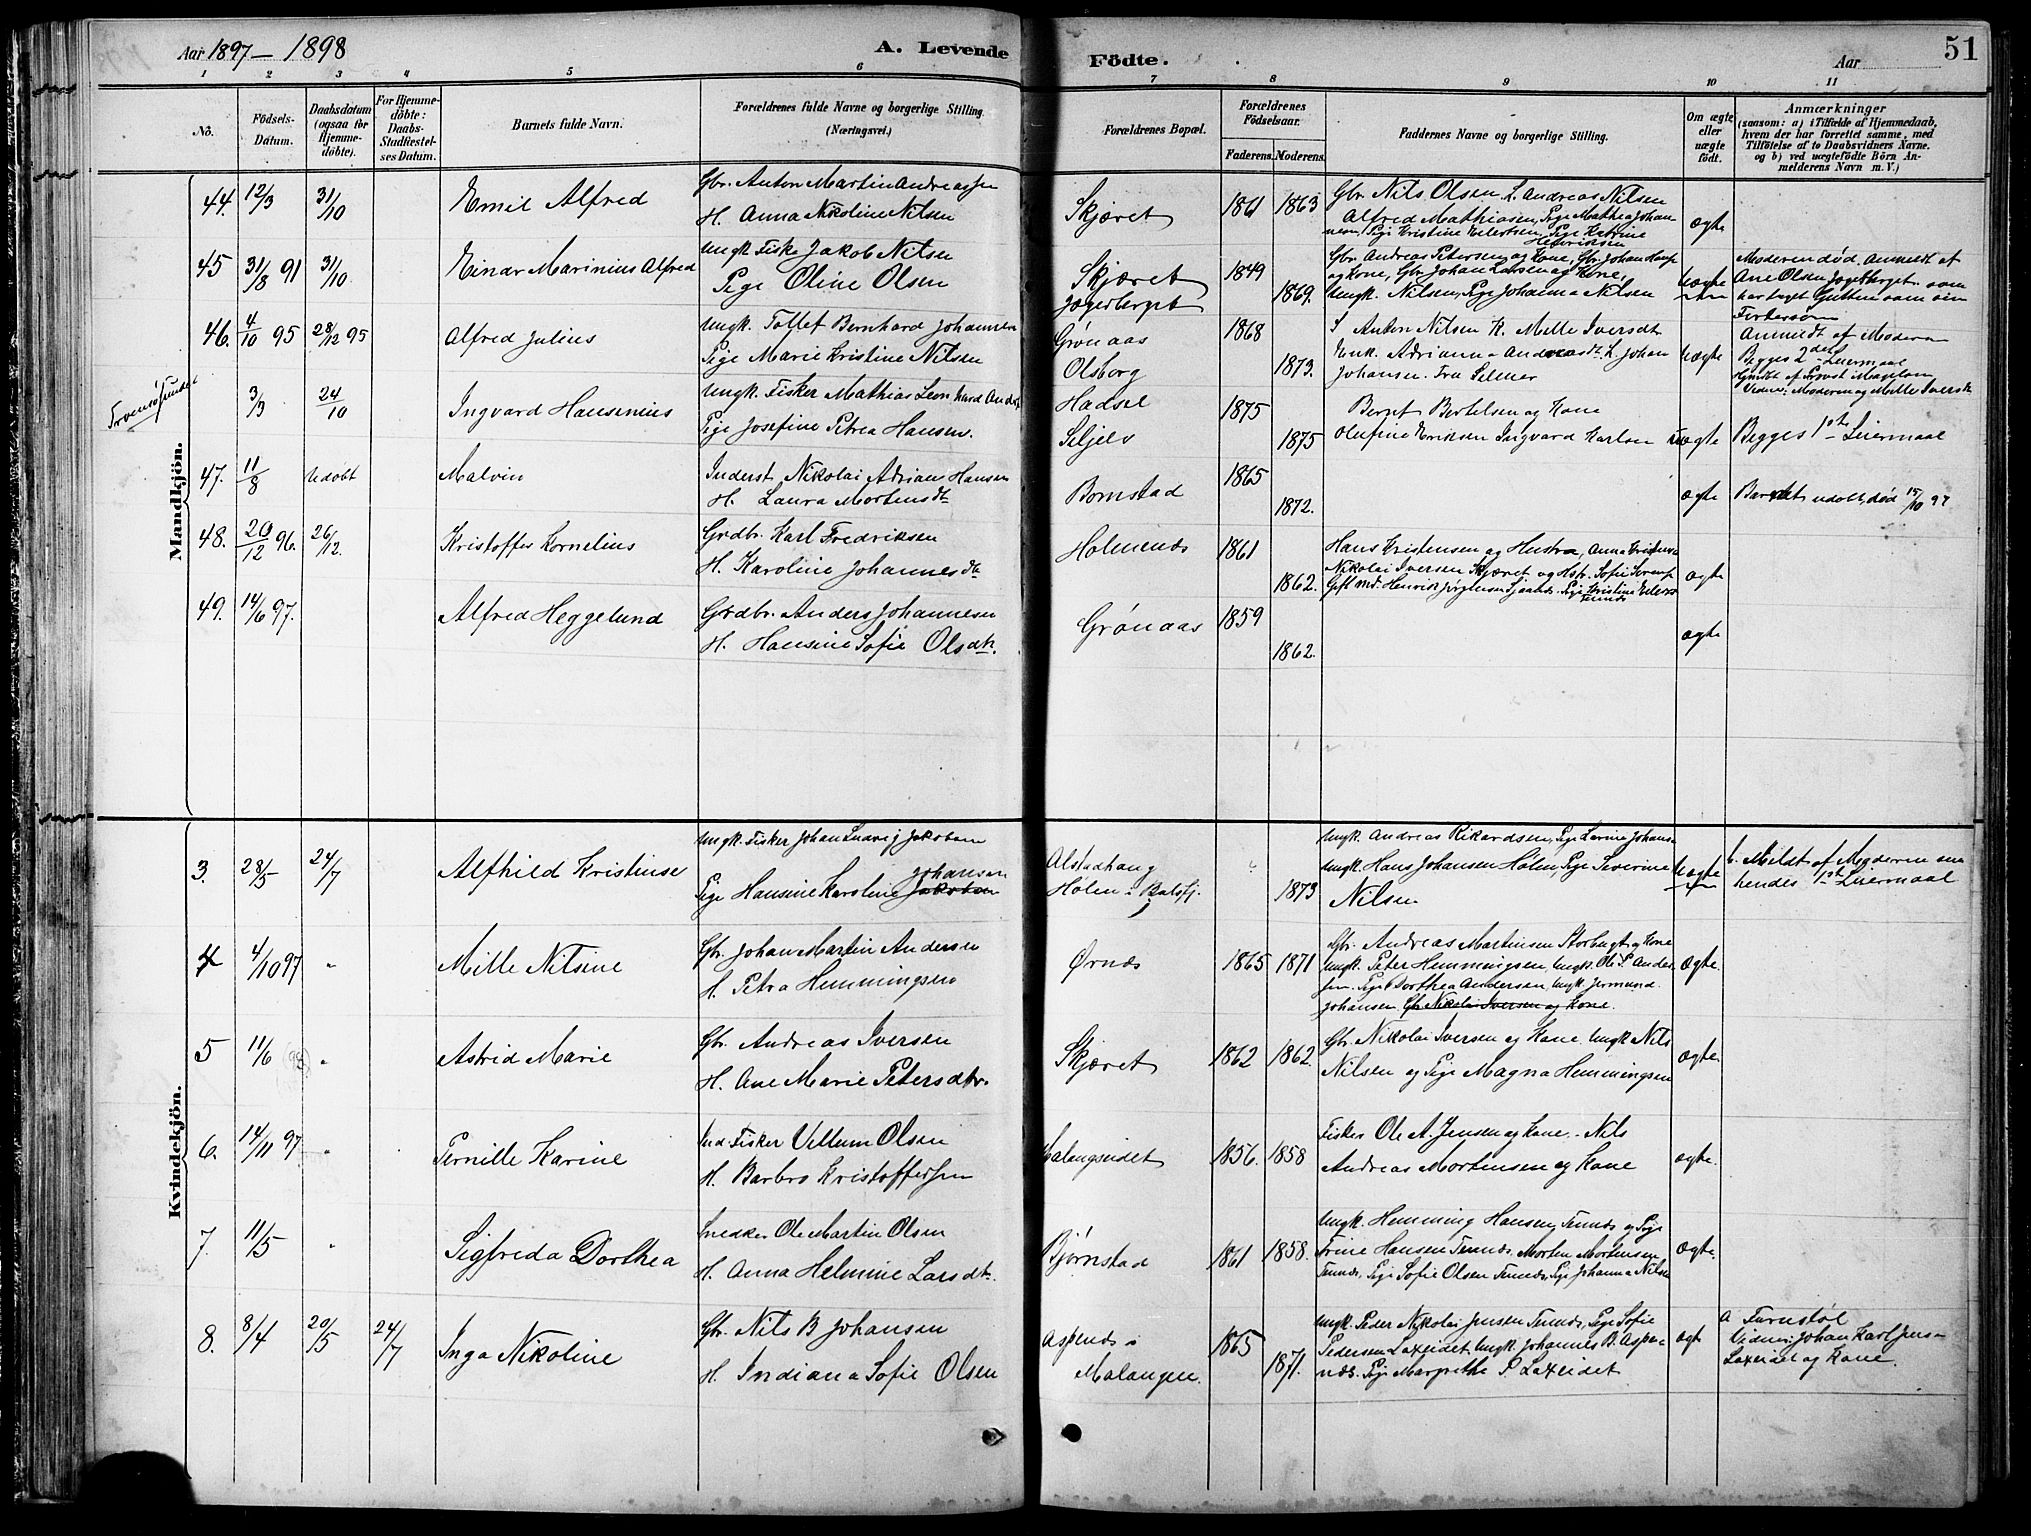 Aar 1897 — 1898
A. Levende
Födte.
Aar
51
1 2 3 4 5 6 7 8 9 10 11
No.
Födsels-
Datum.
Daabsdatum
(ogsaa for
Hjemme-
döbte).
For Hjemme-
döbte:
Daabs-
Stadfæstel-
ses Datum.
Barnets fulde Navn.
Forældrenes fulde Navne og borgerlige Stilling
(Næringsvei.)
Forældrenes Bopæl.
Forældrenes
Födselsaar.
Faderens. Moderens.
Faddernes Navne og borgerlige Stilling.
Om ægte
eller
uægte
födt.
Anmærkninger
(saasom: a) i Tilfælde af Hjemmedaab,
hvem der har forrettet samme, med
Tilföielse af to Daabsvidners Navne.
og b) ved uægtefödte Börn An-
melderens Navn m. V.)
Mandkjön.
44. 12/3 31/10 Emil Alfred
Gbr. Anton Martin Andreassen
H. Anna Nikoline Nilsen
Skjæret 1861 1863
Gbr Nils Olsen, L. Andreas Nilsen
Alfred Mathiasen, Pige Mathea Johan
nesen, Pige Kristine Eilertsen, Pige Katrine
Henriksen
ægte
45 31/8 91 31/10 Einar Marinius Alfred
Ungk. Fisker Jakob Nilsen
Pige Oline Olsen
Skjæret
Jogetberget
1849
1869.
Gbr. Andreas Petersen og Kone, Gbr Johan
og Kone, Gbr. Johan Larsen og Kone,
Ungk. Nilsen, Pige Johanna Nilsen
uægte
Moderen død, Anmeldt af
Ane Olsen Jogetberget som
har taget Gutten som sin
Fostersøn
46. 4/10 95 28/12 95 Alfred Julius
Ungk. Tollef Bernhard Johansen
Pige Marie Kristine Nilsen
Grønaas
Olsborg
1868
1873.
Anton Nilsen K. Mille Iversdt
Enk. Adrianna Andreasdt. L. Johan
Johansen. Fru Selmer
uægte
Anmeldt af Moderen
Begges 2det Leiermaal
Hjmdt af Provst Magelssen
Vidner: Moderen og Mille Iversdt
3/3 24/10 Ingvard Hansenius
Ungk. Fisker Mathias Leonhard Andr
Pige Josefine Petrea Hansen.
Hadsel
Seljelv
1875
1875
Bernt Bertelsen og Kone
Olufine Eriksen Ingvard Karlsen
uægte
Begges 1ste Leiermaal
47. 11/8 Udøbt Malvin
Inderst Nikolai Adrian Hansen
H. Laura Mortensdt
Bomstad
1865
1872.
ægte
Barnet udøbt, død 15/10 97
48. 20/12 96. 26/12. Kristoffer Kornelius
Grdbr. Karl Fredriksen
H. Karoline Johannesdt
Holmenæs 1861
1862.
Hans Kristensen og Hustru, Anna Kristensen
Nikolai Iversen Skjæret og Hstr. Sofie
Gift md. Henrik Jørgensen Pige Kristine Eilerts
Tennæs
ægte
49. 14/6 97. Alfred Heggelund
Grdbr. Anders Johannesen
H. Hansine Sofie Olsdtr.
Grønaas 1859
1862.
ægte
Kvindekjön.
3. 28/5 24/7 Alfhild Kristinse
Ungk. Fisker Johan Ludvig Jakobsen
Johansen
Pige Hansine Karoline Jakobsen
Alstadhaug
Hølen i Balsfj.
1873
Ungk. Andreas Rikardsen, Pige Lovine Johans
Ungk. Hans Johansen Hølen, Pige Severine
Nilsen
uægte
b. Mildt af Moderen som
hendes 1ste Leiermaal
4 4/10 97 " Mille Nilsine
Gbr. Johan Martin Andersen
H. Petra Hemmingsen
Ørnæs 1865 1871
Gbr. Andreas Martinsen Storbugt og Kone
Ungk. Peter Hemmingsen, Ungk. Ole P. Ander
sen. Pige Dorthea Andersen, Ungk. Jermund
Johansen Gbr Nikolai Iversen og Kone.
ægte.
5 11/6 (98) " Astrid Marie
Gbr. Andreas Iversen
H. Ane Marie Petersdtr.
Skjæret 1862 1862.
Gbr. Nikolai Iversen og Kone, Ungk Nils
Nilsen og Pige Magna Hemmingsen
ægte
6. 14/11 97 " Pernille Karine
Ind. Fisker Villum Olsen
H. Barbro Kristoffersen
Malangseidet 1856. 1858
Fisker Ole A. Jensen og Kone. Nils
Andreas Mortensen og Kone
ægte.
7. 11/5 " Sigfreda Dorthea
Snedker Ole Martin Olsen
H. Anna Helmine Larsdtr.
Bjørnstad 1861 1858.
Ungk. Hemming Hansen Tennæs og Pige
Trine Hansen Tennæs, Morten Mortensen
Tennæs, Pige Sofie Olsen Tennæs, Pige Johanna Nilsen
ægte.
8. 8/4 20/5 24/7 Inga Nikoline
Gbr. Nils B Johansen
H. Indiana Sofie Olsen
Aspenæs i
Malangen.
1865
1871.
Ungk. Peder Nikolai Jensen Tennæs, Pige Sofie
Pedersen Laxeidet, Ungk. Johannes B. Aspe-
næs. Pige Margrethe P. Laxeidet
ægt
a Furnstøl
Vidner: Johan Karl Jens
Laxeidet og Kone.